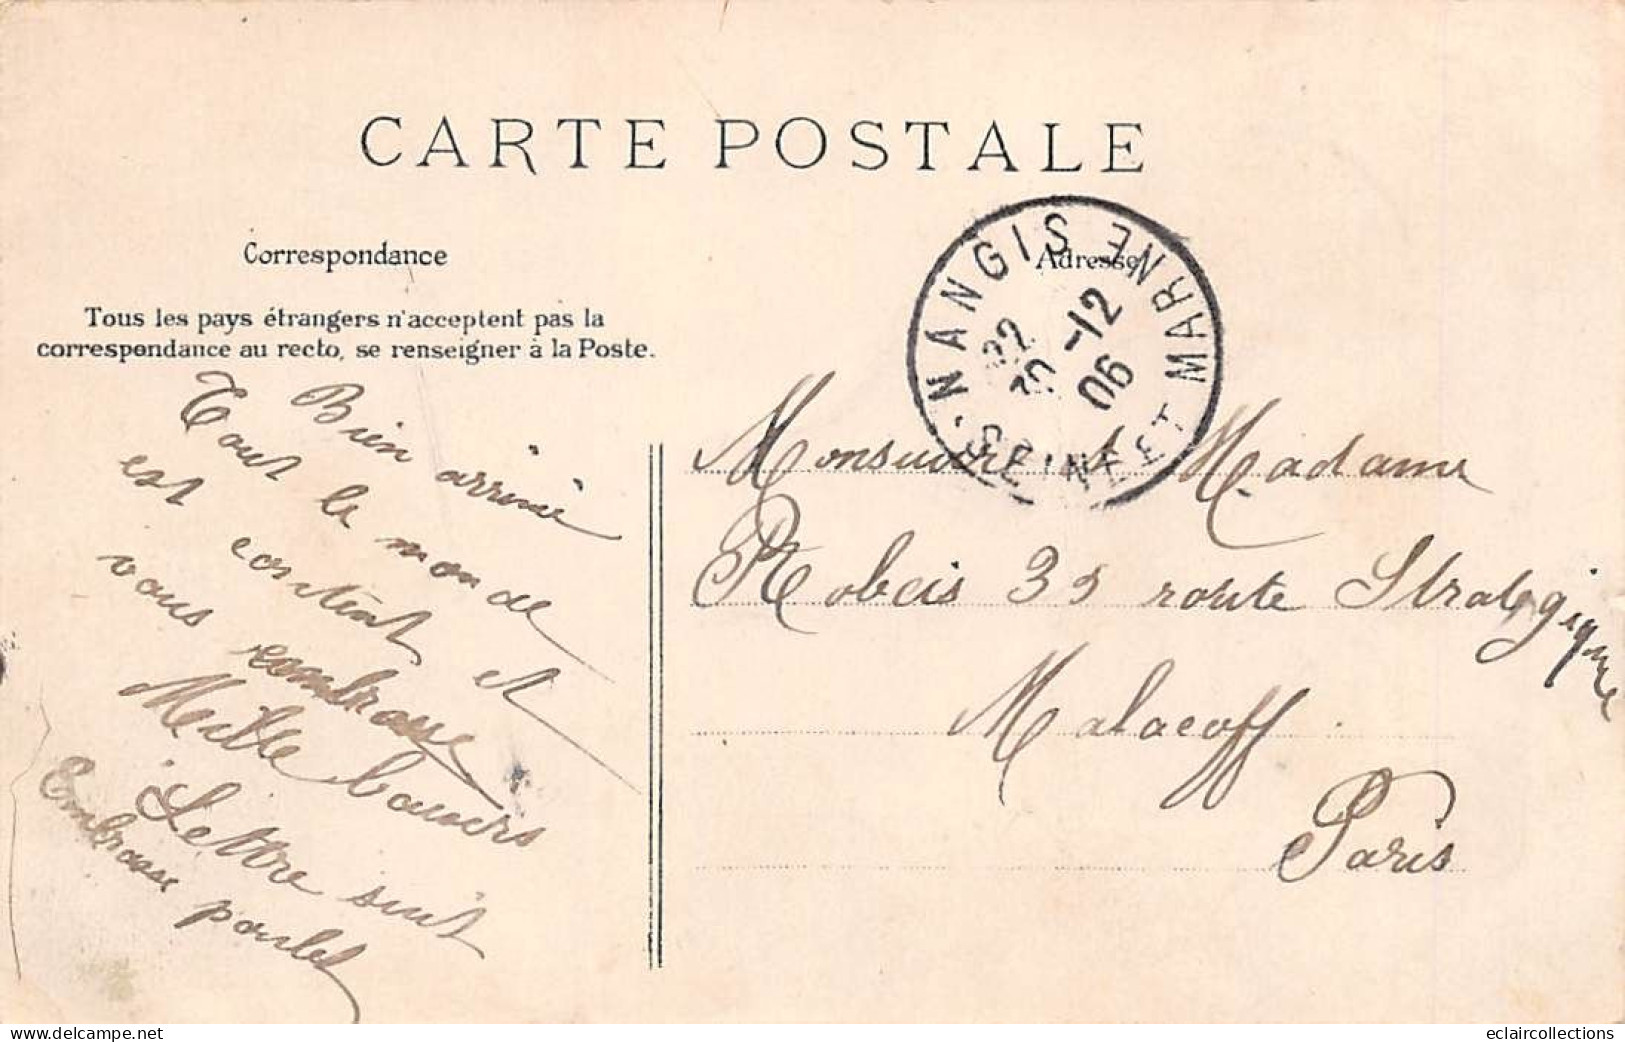 CARTE POSTALE
Correspondance
Tous les pays étrangers n'acceptent pas la
correspondance au recto, se renseigner à la Poste.
Bien arrivé
Tout le monde
est content et
vous embrasse
Mille baisers
Lettre suit
Embrasse poulet
Adresse
NANGIS
SEINE ET MARNE
22
-12
06
Monsieur et Madame
Robcis 35 route Stratégique
Malacoff
Paris
eclaircollections